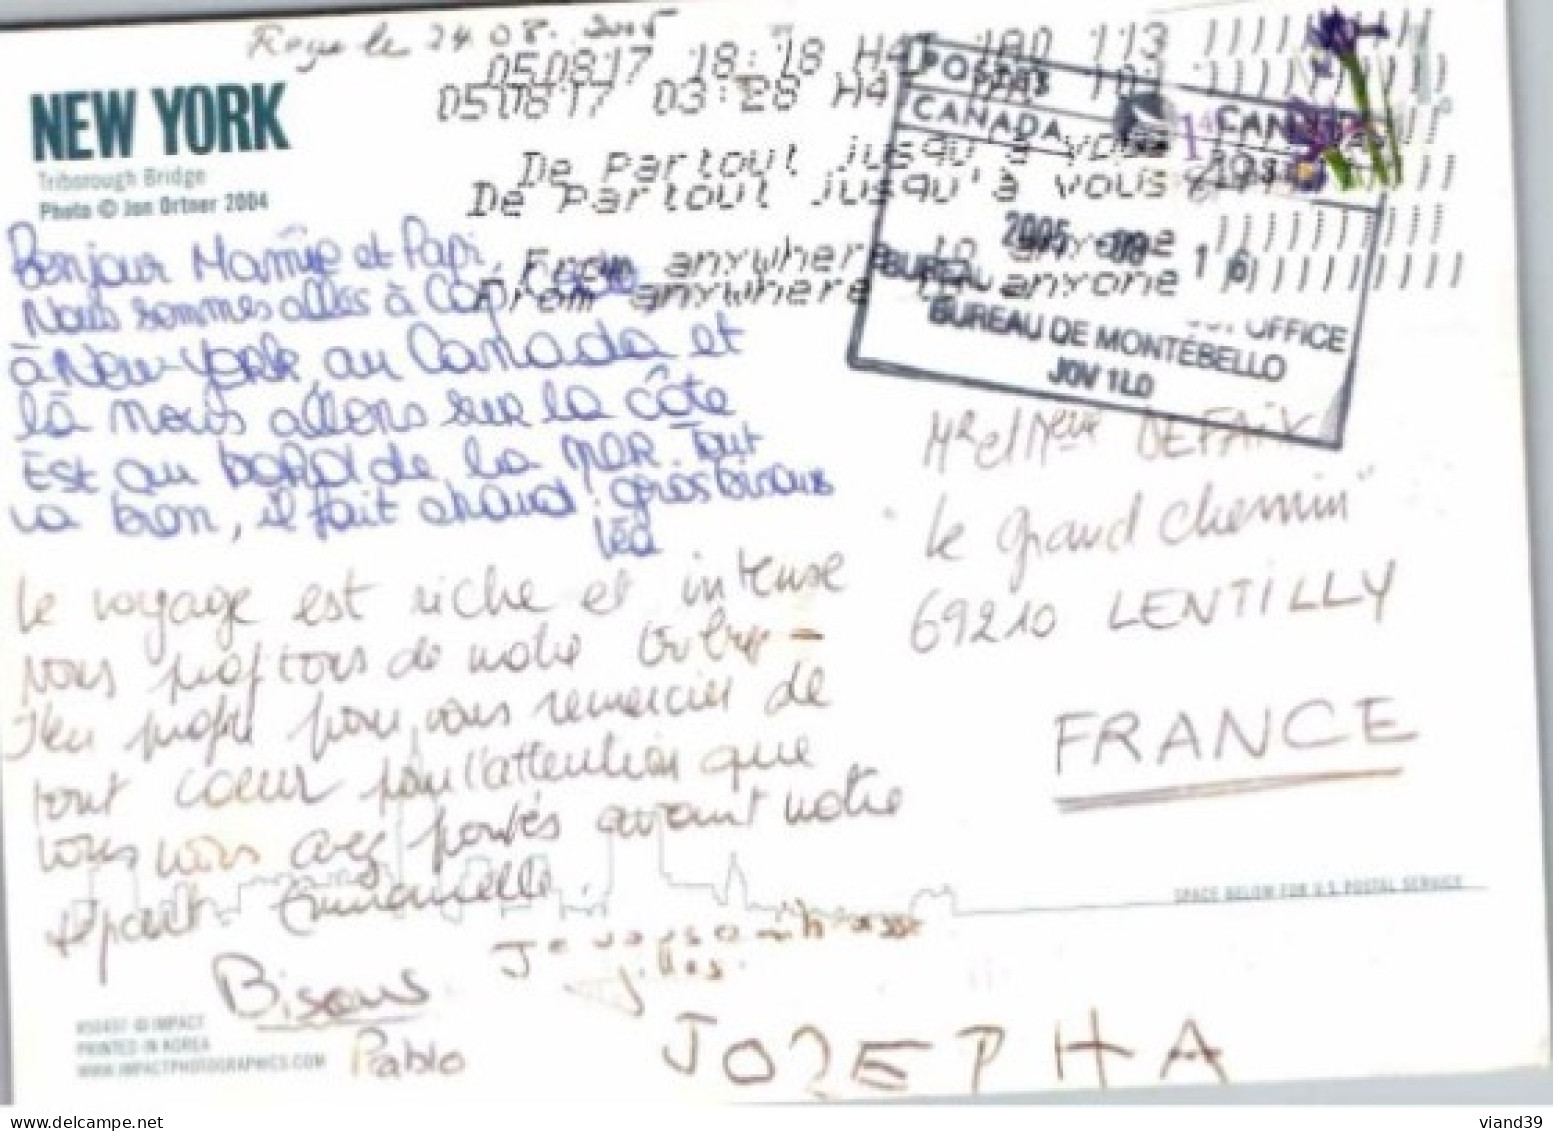 Reçu le 24.08.2005
NEW YORK
Triborough Bridge
Photo © Jon Ortner 2004
050817 18:18 H4T 180 113
050817 03:28 H4T
De partout jusqu'à vous
De partout jusqu'à vous
From anywhere to anyone
From anywhere to anyone
POSTES CANADA
CANADA
2005 -08- 16
BUREAU
POST OFFICE
BUREAU DE MONTÉBELLO
J0V 1L0
Bonjour Mamie et Papi,
Nous sommes allés à Cap
à New-york au Canada et
là nous allons sur la côte
Est au bord de la mer. Tout
va bien, il fait chaud. gros bisous
Léa
Le voyage est riche et intense
nous profitons de notre
J'en profite pour vous remercier de
tout coeur pour l'attention que
vous nous avez portés avant notre
départ. Emmanuelle.
Je vous embrasse
Gilles.
Bisous
Pablo
JOZEPHA
Mr et Mme DEFAIX
"Le grand chemin"
69210 LENTILLY
FRANCE
SPACE BELOW FOR U.S. POSTAL SERVICE
© IMPACT
PRINTED IN KOREA
WWW.IMPACTPHOTOGRAPHICS.COM
viand39